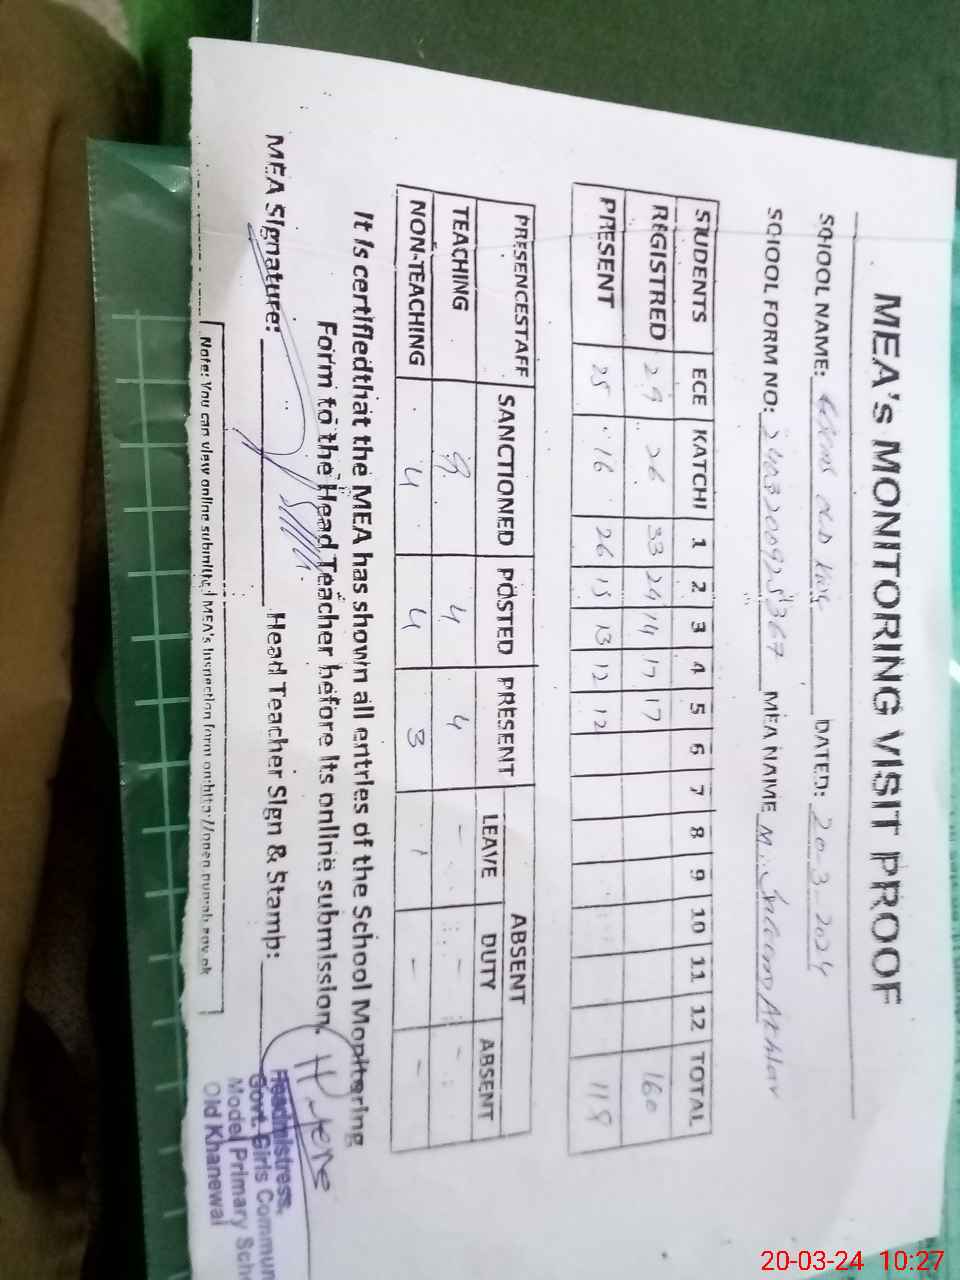 MEA's MONITORING VISIT PROOF
SCHOOL NAME: DATED: 20-3-2024
SCHOOL FORM NO: MEA NAME M.
STUDENTS ECE KATCHI 1 2 3 4 5 6 7 8 9 10 11 12 TOTAL
REGISTRED 29 26 33 24 14 17 17 160
PRESENT 25 16 26 15 13 12 12 119
PRESENCESTAFF SANCTIONED POSTED PRESENT ABSENT
LEAVE DUTY ABSENT
TEACHING 9 4 4 - - -
NON-TEACHING 4 4 3 - -
It is certifiedthat the MEA has shown all entries of the School Monitoring
Form to the Head Teacher before its online submission.
MEA Signature: Head Teacher Sign & Stamb:
Headmistress,
Govt. Girls Commun
Model Primary Sch
Old Khanewal
Note: You can view online submitted MEA's Inspection form on:http://open.punjab.gov.pk
20-03-24 10:27